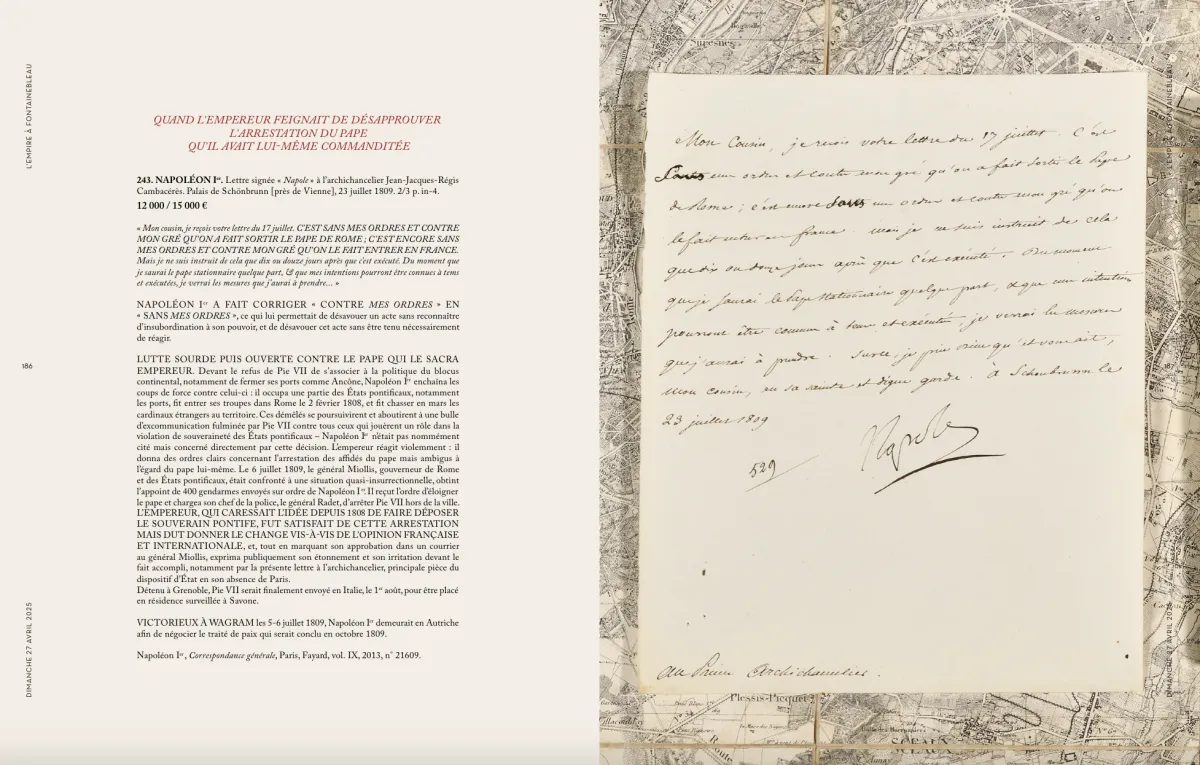 L'EMPIRE À FONTAINEBLEAU
186
DIMANCHE 27 AVRIL 2025
QUAND L'EMPEREUR FEIGNAIT DE DÉSAPPROUVER
L'ARRESTATION DU PAPE
QU'IL AVAIT LUI-MÊME COMMANDITÉE
243. NAPOLÉON Ier. Lettre signée « Napole » à l'archichancelier Jean-Jacques-Régis
Cambacérès. Palais de Schönbrunn [près de Vienne], 23 juillet 1809. 2/3 p. in-4.
12 000 / 15 000 €
« Mon cousin, je reçois votre lettre du 17 juillet. C'EST SANS MES ORDRES ET CONTRE
MON GRÉ QU'ON A FAIT SORTIR LE PAPE DE ROME ; C'EST ENCORE SANS
MES ORDRES ET CONTRE MON GRÉ QU'ON LE FAIT ENTRER EN FRANCE.
Mais je ne suis instruit de cela que dix ou douze jours après que c'est exécuté. Du moment que
je saurai le pape stationnaire quelque part, & que mes intentions pourront être connues à tems
et exécutées, je verrai les mesures que j'aurai à prendre... »
NAPOLÉON Ier A FAIT CORRIGER « CONTRE MES ORDRES » EN
« SANS MES ORDRES », ce qui lui permettait de désavouer un acte sans reconnaître
d'insubordination à son pouvoir, et de désavouer cet acte sans être tenu nécessairement
de réagir.
LUTTE SOURDE PUIS OUVERTE CONTRE LE PAPE QUI LE SACRA
EMPEREUR. Devant le refus de Pie VII de s'associer à la politique du blocus
continental, notamment de fermer ses ports comme Ancône, Napoléon Ier enchaîna les
coups de force contre celui-ci : il occupa une partie des États pontificaux, notamment
les ports, fit entrer ses troupes dans Rome le 2 février 1808, et fit chasser en mars les
cardinaux étrangers au territoire. Ces démêlés se poursuivirent et aboutirent à une bulle
d'excommunication fulminée par Pie VII contre tous ceux qui jouèrent un rôle dans la
violation de souveraineté des États pontificaux – Napoléon Ier n'était pas nommément
cité mais concerné directement par cette décision. L'empereur réagit violemment : il
donna des ordres clairs concernant l'arrestation des affidés du pape mais ambigus à
l'égard du pape lui-même. Le 6 juillet 1809, le général Miollis, gouverneur de Rome
et des États pontificaux, était confronté à une situation quasi-insurrectionnelle, obtint
l'appoint de 400 gendarmes envoyés sur ordre de Napoléon Ier. Il reçut l'ordre d'éloigner
le pape et chargea son chef de la police, le général Radet, d'arrêter Pie VII hors de la ville.
L'EMPEREUR, QUI CARESSAIT L'IDÉE DEPUIS 1808 DE FAIRE DÉPOSER
LE SOUVERAIN PONTIFE, FUT SATISFAIT DE CETTE ARRESTATION
MAIS DUT DONNER LE CHANGE VIS-À-VIS DE L'OPINION FRANÇAISE
ET INTERNATIONALE, et, tout en marquant son approbation dans un courrier
au général Miollis, exprima publiquement son étonnement et son irritation devant le
fait accompli, notamment par la présente lettre à l'archichancelier, principale pièce du
dispositif d'État en son absence de Paris.
Détenu à Grenoble, Pie VII serait finalement envoyé en Italie, le 1er août, pour être placé
en résidence surveillée à Savone.
VICTORIEUX À WAGRAM les 5-6 juillet 1809, Napoléon Ier demeurait en Autriche
afin de négocier le traité de paix qui serait conclu en octobre 1809.
Napoléon Ier, Correspondance générale, Paris, Fayard, vol. IX, 2013, n° 21609.
Suresnes
Mon Cousin, je reçois votre lettre du 17 juillet. C'est
Sans mes ordres et contre mon gré qu'on a fait sortir le Pape
de Rome ; c'est encore sans mes ordres et contre mon gré qu'on
le fait entrer en france. mais je ne suis instruit de cela
que dix ou douze jours après que c'est exécuté. Du moment
que je saurai le Pape stationnaire quelque part, et que mes intentions
pourront être connues à tems et exécutées, je verrai les mesures
que j'aurai à prendre. Sur ce, je prie Dieu qu'il vous ait,
Mon cousin, en sa sainte et digne garde. à Schonbrunn le
23 juillet 1809
529
Napole
au Prince Archichancelier.
Plessis-Picquet
SCEAUX
187
DIMANCHE 27 AVRIL 2025